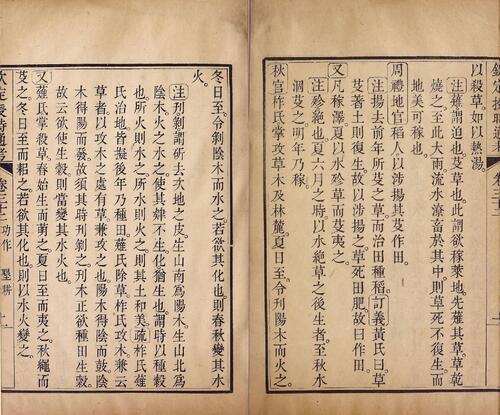 以殺草。如以熱湯。
注薙謂迫也芟草也。此謂欲稼萊地。先薙其草。草乾
燒之。至此大雨流水潦畜於其中。則草死不復生。而
地美可稼也。
周禮地官稻人以涉揚其芟作田。
注揚去前年所芟之草而治田種稻。訂義黃氏曰草
芟著土則復生。故以涉揚之。草死田肥。故曰作田。
又凡稼澤。夏以水殄草而芟夷之。
注殄絶也。夏六月之時。以水絶草之後生者。至秋水
涸芟之。明年乃稼。
秋官柞氏掌攻草木及林麓。夏日至。令刋陽木而火之。
冬日至。令剝陰木而水之。若欲其化也。則春秋變其水
火。
注刋剝謂斫去次地之皮。生山南爲陽木。生山北爲
陰木。火之水之。使其肄不生。化猶生也。謂時以種穀
也。所火則水之。所水則火之。則其土和美。疏柞氏薙
氏治地。皆擬後年乃種田。薙氏除草。柞氏攻木。兼云
草者。以攻木之處有草。兼攻之也。陽木得陰而鼓。陰
木得陽而發。故須其時刋剝之。刋木正欲種田生穀
故云欲使生穀。則當變其水火也。
又薙氏掌殺草。春始生而萌之。夏日至而夷之。秋繩而
芟之。冬日至而耜之。若欲其化也。則以水火變之。
欽定授時通考 卷三十二 功作 墾耕 十一